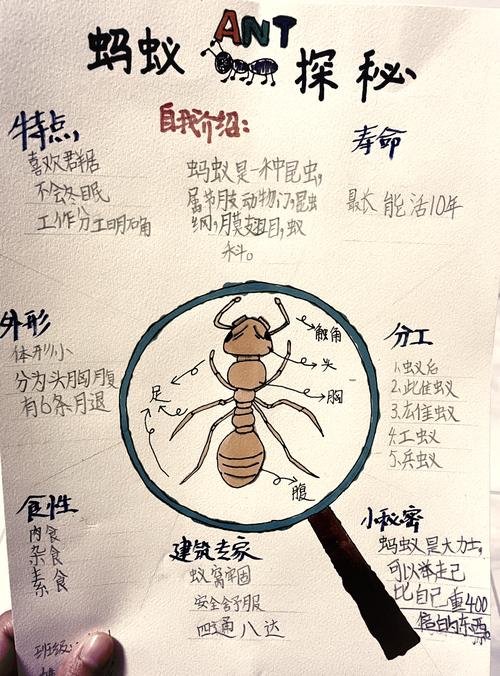 ANT
蚂蚁 探秘
自我介绍:
蚂蚁是一种昆虫,
属节肢动物门,昆虫
纲,膜翅目,蚁
科。
特点
喜欢群居
不会冬眠
工作分工明确
寿命
最长能活10年
外形
体形小
分为头胸腹
有6条月退
触角
头
胸
足
腹
分工
1.蚁后
2.雌蚁
3.雄蚁
4.工蚁
5.兵蚁
食性
肉食
杂食
素食
建筑专家
蚁窝牢固
安全舒服
四通八达
小秘密
蚂蚁是大力士,
可以举走己
比自己重400
倍的东西。
班级: